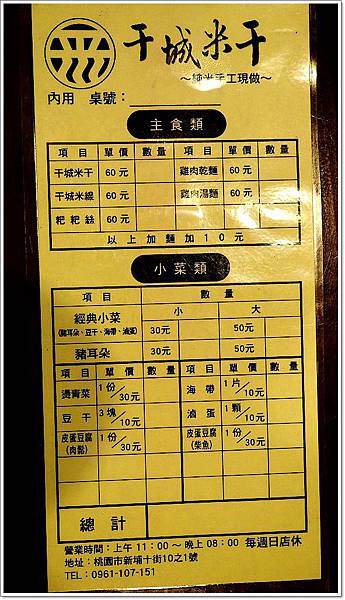 干城米干
～純米手工現做～
內用 桌號：
主食類
項目 單價 數量 項目 單價 數量
干城米干 60元 雞肉乾麵 60元
干城米線 60元 雞肉湯麵 60元
粑粑絲 60元
以上加麵加10元
小菜類
項目 數量
小 大
經典小菜 30元 50元
(豬耳朵、豆干、海帶、滷蛋)
豬耳朵 30元 50元
項目 單價 數量 項目 單價 數量
燙青菜 1份/30元 海帶 1片/10元
豆干 3塊/10元 滷蛋 1顆/10元
皮蛋豆腐(肉鬆) 1份/30元 皮蛋豆腐(柴魚) 1份/30元
總計
營業時間：上午11：00～晚上08：00 每週日店休
地址：桃園市新埔十街10之1號
TEL：0961-107-151